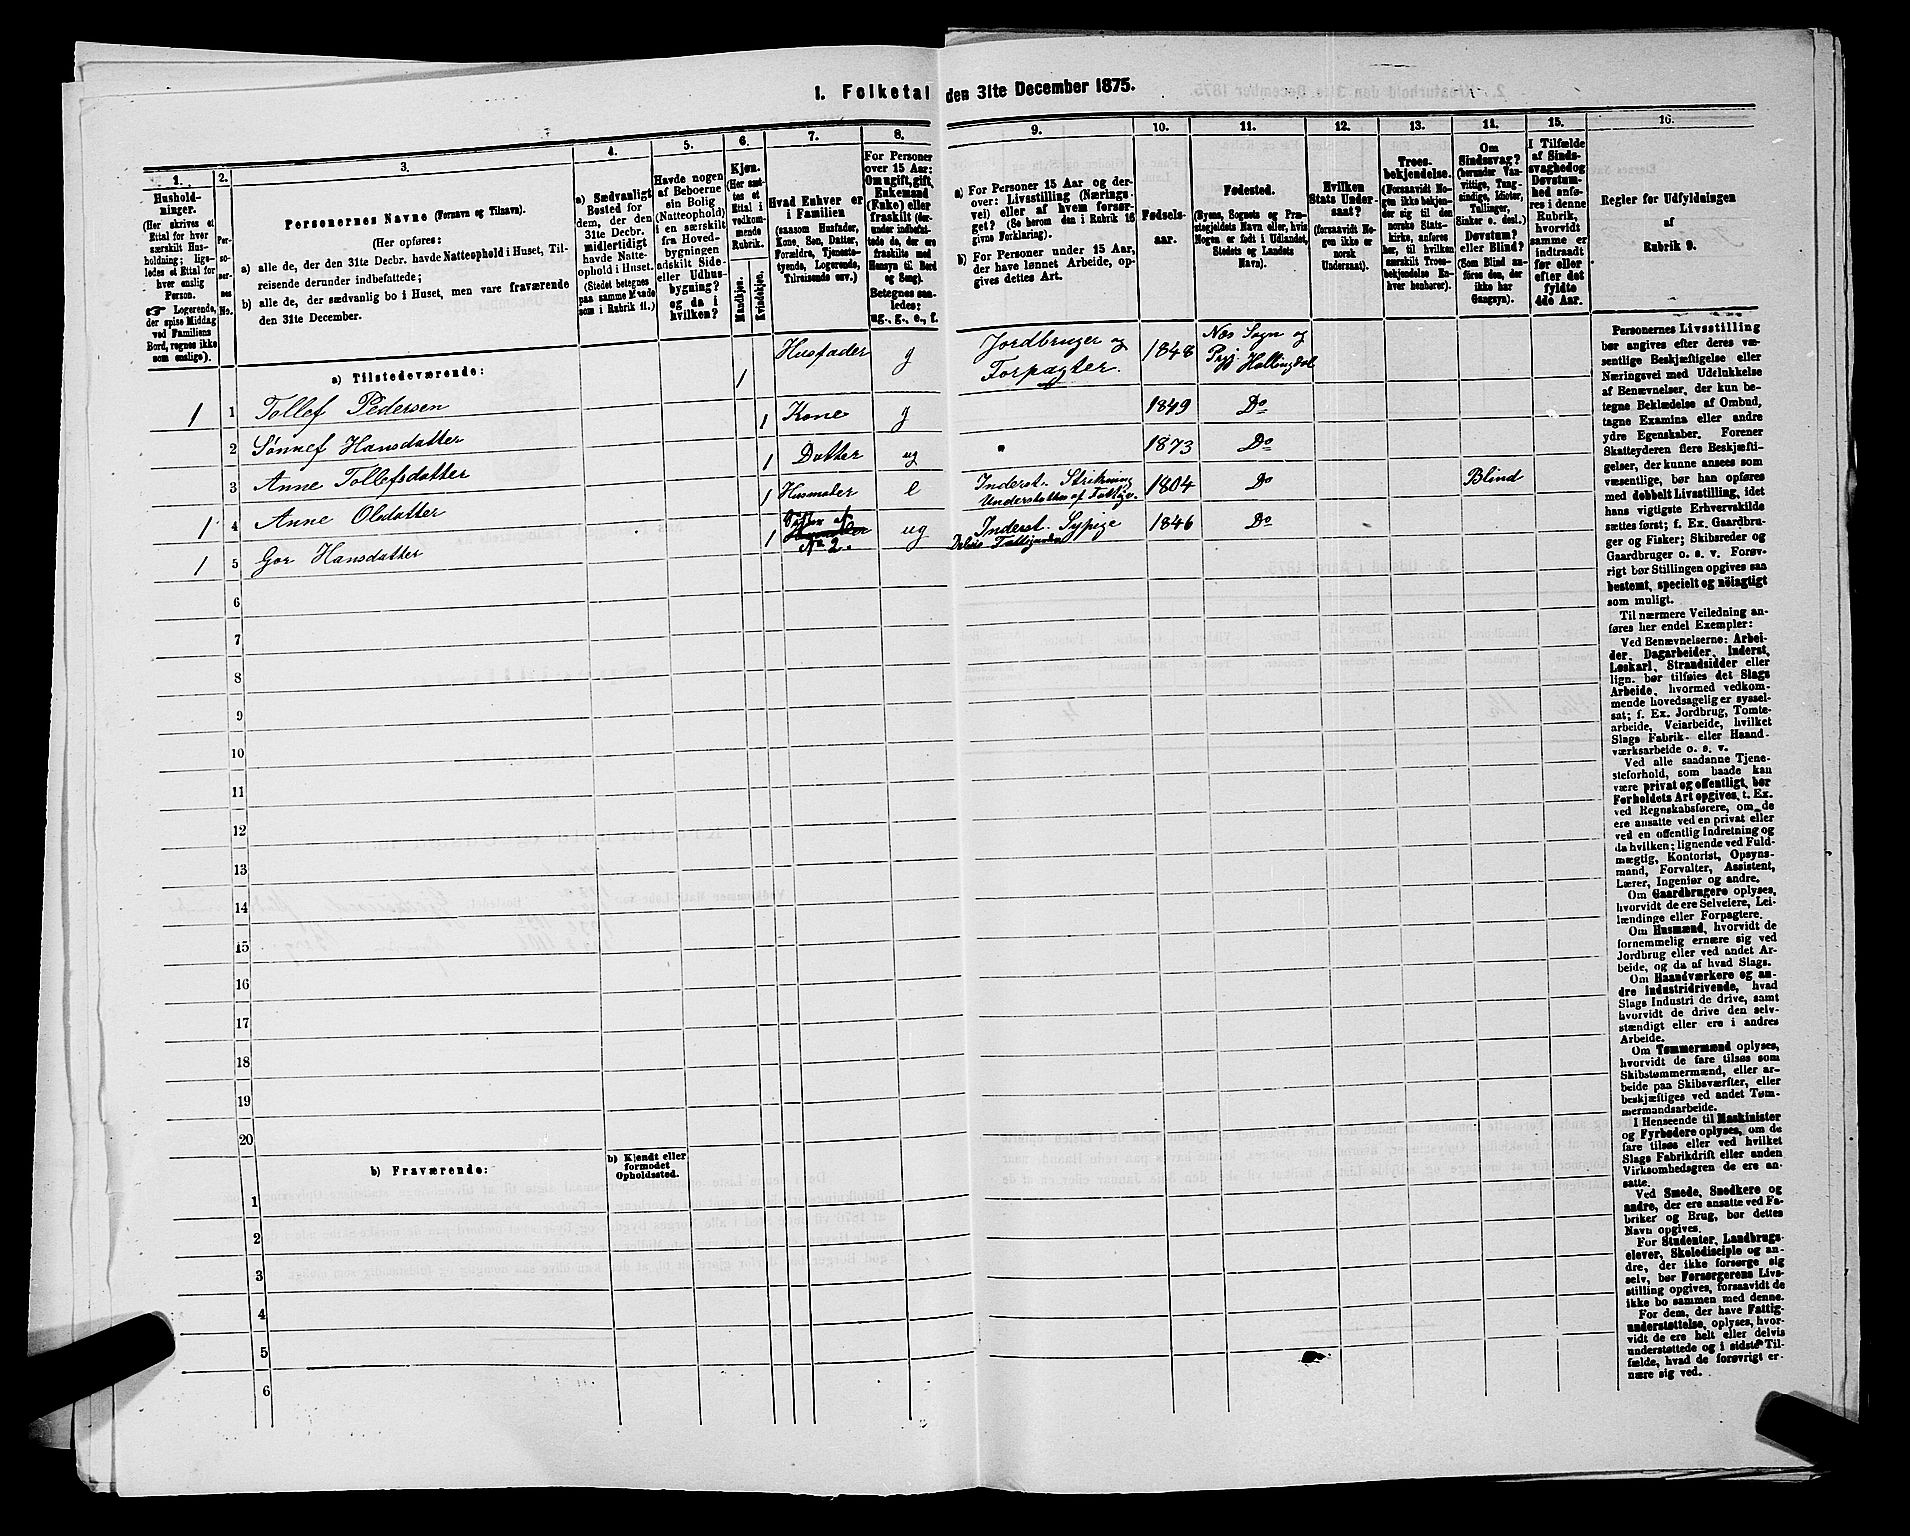 1. Folketal den 31te December 1875.
1.
Husholdninger.
(Her skrives et
Ettal for hver
særskilt Husholdning;
ligeledes et Ettal for
hver enslig
Person.
☞ Logerende,
der spise Middag
ved Familiens
Bord, regnes ikke
som enslige).
2.
Personernes
No.
3.
Personernes Navne (Fornavn og Tilnavn).
(Her opføres:
a) alle de, der den 31te Decbr. havde Natteophold i Huset, Tilreisende derunder indbefattede;
b) alle de, der sædvanlig bo i Huset, men vare fraværende
den 31te December.
4.
a) Sædvanligt
Bosted for
dem, der den
31te Decbr.
midlertidigt
havde Natteophold
i Huset.
(Stedet betegnes
paa samme Maade
som i Rubrik 11.)
5.
Havde nogen
af Beboerne
sin Bolig
(Natteophold)
i en særskilt
fra Hovedbygningen
adskilt Side-
eller Udhusbygning?
og da i
hvilken?
6.
Kjøn.
(Her sættes
et
Ettal i
vedkommende
Rubrik.
Mandkjøn.
Kvindekjøn.
7.
Hvad Enhver er
i Familien
(saasom Husfader,
Kone, Søn, Datter,
Forældre, Tjenestetyende,
Logerende,
Tilreisende osv.)
8.
For Personer
over 15 Aar:
Om ugift, gift,
Enkemand
(Enke) eller
fraskilt (derunder
indbefattede de, der ere
fraskilte med
Hensyn til Bord
og Seng).
Betegnes saaledes:
ug., g., e., f.
9.
a) For Personer 15 Aar og derover:
Livsstilling (Næringsvei)
eller af hvem forsørget?
(Se herom den i Rubrik 16
givne Forklaring).
b) For Personer under 15 Aar,
der have lønnet Arbeide, opgives
dettes Art.
10.
Fødselsaar.
11.
Fødested.
(Byens, Sognets og Præstegjeldets
Navn eller, hvis
Nogen er født i Udlandet,
Stedets og Landets
Navn).
12.
Hvilken
Stats Undersaat?
(forsaavidt Nogen
ikke er
norsk
Undersaat).
13.
Troesbekjendelse.
(Forsaavidt Nogen
ikke bekjender
sig til den
norske Statskirke,
anføres
her, til hvilken
særskilt Troesbekjendelse
Enhver
henhører).
14.
Om
Sindssvag?
(herunder Vanvittige,
Tungsindige,
Idioter,
Tullinger,
Sinker o. desl.)
Døvstum?
eller Blind?
(Som Blind anføres
den, der
ikke har
Gangsyn).
15.
I Tilfælde
af Sindssvaghed
og
Døvstumhed
anføres
i denne
Rubrik,
hvorvidt
samme er
indtraadt
før eller
efter det
fyldte
4de Aar.
16.
Regler for Udfyldningen
af
Rubrik 9.
a) Tilstedeværende:
1 1 Tollef Pedersen 1 Husfader g Jordbruger og Forpagter. 1848 Næs Sogn og Prgj Hallingdal
2 Sønnef Hansdatter 1 Kone g 1849 Do
3 Anne Tollefsdatter 1 Datter ug " 1873 Do
1 4 Anne Olsdatter 1 Husmoder e Inderst. Strikning Understøttes af Fattigv. 1804 Do Blind
1 5 Gor Hansdatter 1 No 2. ug Inderst. Sypige 1846 Do
6
7
8
9
10
11
12
13
14
15
16
17
18
19
20
b) Fraværende:
b) Kjendt eller
formodet
Opholdssted.
1
2
3
4
5
6
Personernes Livsstilling
bør angives efter deres væsentlige
Beskjæftigelse eller
Næringsvei med Udelukkelse
af Benævnelser, der kun betegne
Beklædelse af Ombud,
tagne Examina eller andre
ydre Egenskaber. Forener
Skatteyderen flere Beskjæftigelser,
der kunne ansees som
væsentlige, bør han opføres
med dobbelt Livsstilling, idet
hans vigtigste Erhvervskilde
sættes først; f. Ex. Gaardbruger
og Fisker; Skibsreder og
Gaardbruger o. s. v. Forøvrigt
bør Stillingen opgives saa
bestemt, specielt og nöiagtigt
som muligt.
Til nærmere Veiledning anføres
her endel Exempler:
Ved Benævnelserne: Arbeider,
Dagarbeider, Inderst,
Løskarl, Strandsidder eller
lign. bør tilføies det Slags
Arbeide, hvormed vedkommende
hovedsagelig er sysselsat;
f. Ex. Jordbrug, Tomtearbeide,
Veiarbeide, hvilket
Slags Fabrik- eller Haandværksarbeide
o. s. v.
Ved alle saadanne Tjenesteforhold,
som baade kan
være privat og offentligt, bør
Forholdets Art opgives, t. Ex.
ved Regnskabsførere, om de
ere ansatte ved en privat eller
ved en offentlig Indretning og
da hvilken; lignende ved Fuldmægtig,
Kontorist, Opsynsmand,
Forvalter, Assistent,
Lærer, Ingeniør og andre.
Om Gaardbrugere oplyses,
hvorvidt de ere Selveiere, Leilændinge
eller Forpagtere.
Om Husmænd, hvorvidt de
fornemmelig ernære sig ved
Jordbrug eller ved andet Arbeide,
og da af hvad Slags.
Om Haandværkere og andre
industridrivende, hvad
Slags Industri de drive, samt
hvorvidt de drive den selvstændigt
eller ere i andres
Arbeide.
Om Tømmermænd oplyses,
hvorvidt de fare tilsøs som
Skibstømmermænd, eller arbeide
paa Skibsværfter, eller
beskjæftiges ved andet Tømmermandsarbeide.
I Henseende til Maskinister
og Fyrbødere oplyses, om de
fare tilsøs eller ved hvilket
Slags Fabrikdrift eller anden
Virksomhedsgren de ere ansatte.
Ved Smede, Snedkere og
andre, der ere ansatte ved Fabriker
og Brug, bør dettes
Navn opgives.
For Studenter, Landbrugselever,
Skoledisciple og andre,
der ikke forsørge sig
selv, bør Forsørgerens Livsstilling
opgives, forsaavidt de
ikke bo sammen med denne.
For dem, der have Fattigunderstøttelse,
oplyses, hvorvidt
de ere helt eller delvis
understøttede og i sidste Tilfælde,
hvad de forøvrigt ernære
sig ved.